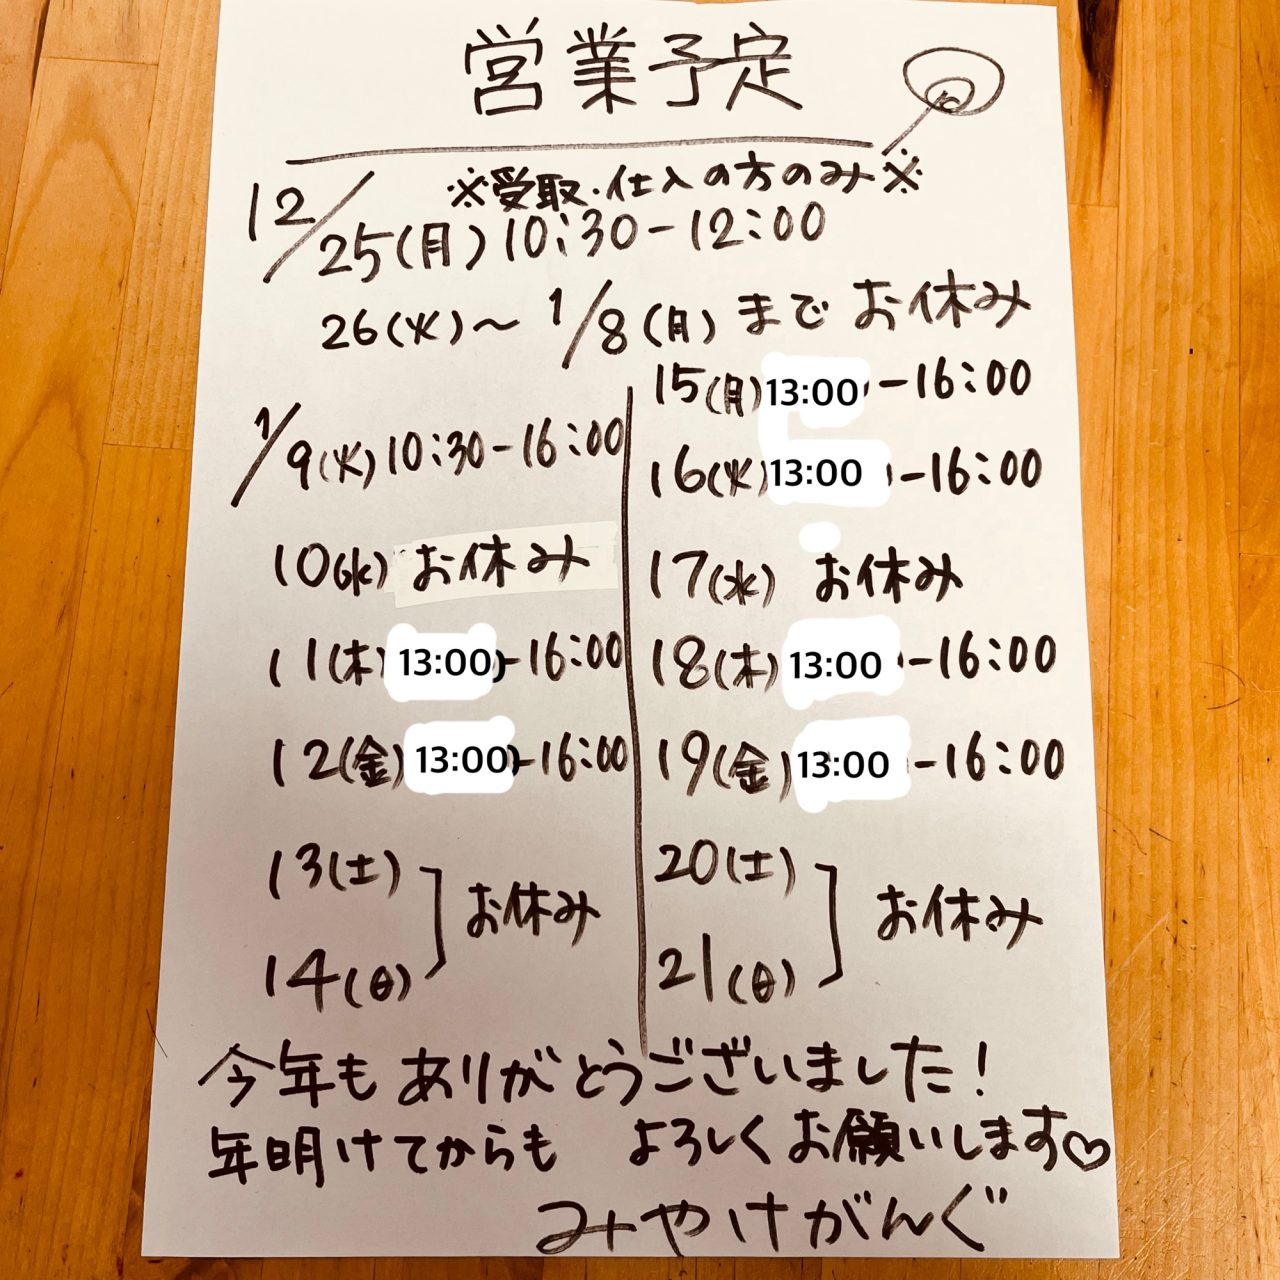 営業予定
※受取・仕入の方のみ※
12/25(月)10:30-12:00
26(火)〜1/8(月)までお休み
1/9(火)10:30-16:00
10(水)お休み
11(木)13:00-16:00
12(金)13:00-16:00
13(土)
14(日)
お休み
15(月)13:00-16:00
16(火)13:00-16:00
17(水)お休み
18(木)13:00-16:00
19(金)13:00-16:00
20(土)
21(日)
お休み
今年もありがとうございました!
年明けてからも よろしくお願いします♡
みやけがんぐ